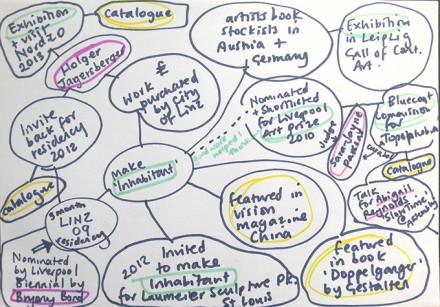 Exhibition
+ visit
Nord 20
2013
Catalogue
Holger
Jagersberger
£
Work
purchased
by City
of Linz
artists book
stockists in
Austria +
Germany
Exhibition
in Leipzig
Gall of Cont.
Art.
Invite
back for
residency
2012
Nominated
+ Shortlisted
for Liverpool
Art Prize
2010
this work
helped I
think
Judge
Sara-Jayne
Parsons
curator
Bluecoat
Commission
for
Topophobia
Catalogue
make
'Inhabitant'
Catalogue
3 month
LINZ
09
residency
Nominated
by Liverpool
Biennial by
Bryony Bond
2012 Invited
to make
Inhabitant
for Laumeier Sculpture Pk.
St Louis
Featured in
Vision
magazine
China
Talk
for Abigail
Reynolds
Slow Time
Assembly
featured
in book
'Doppelganger'
by Gestalten